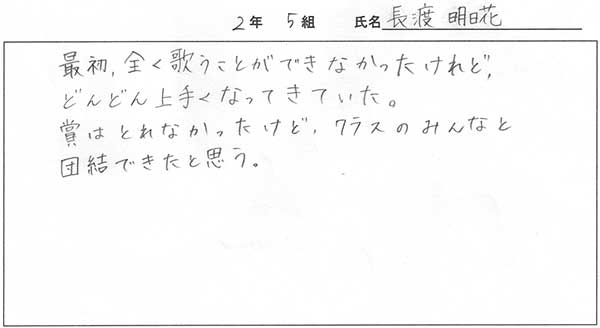 2年 5組 氏名 長渡 明日花
最初,全く歌うことができなかったけれど,
どんどん上手くなってきていた。
賞はとれなかったけど,クラスのみんなと
団結できたと思う。